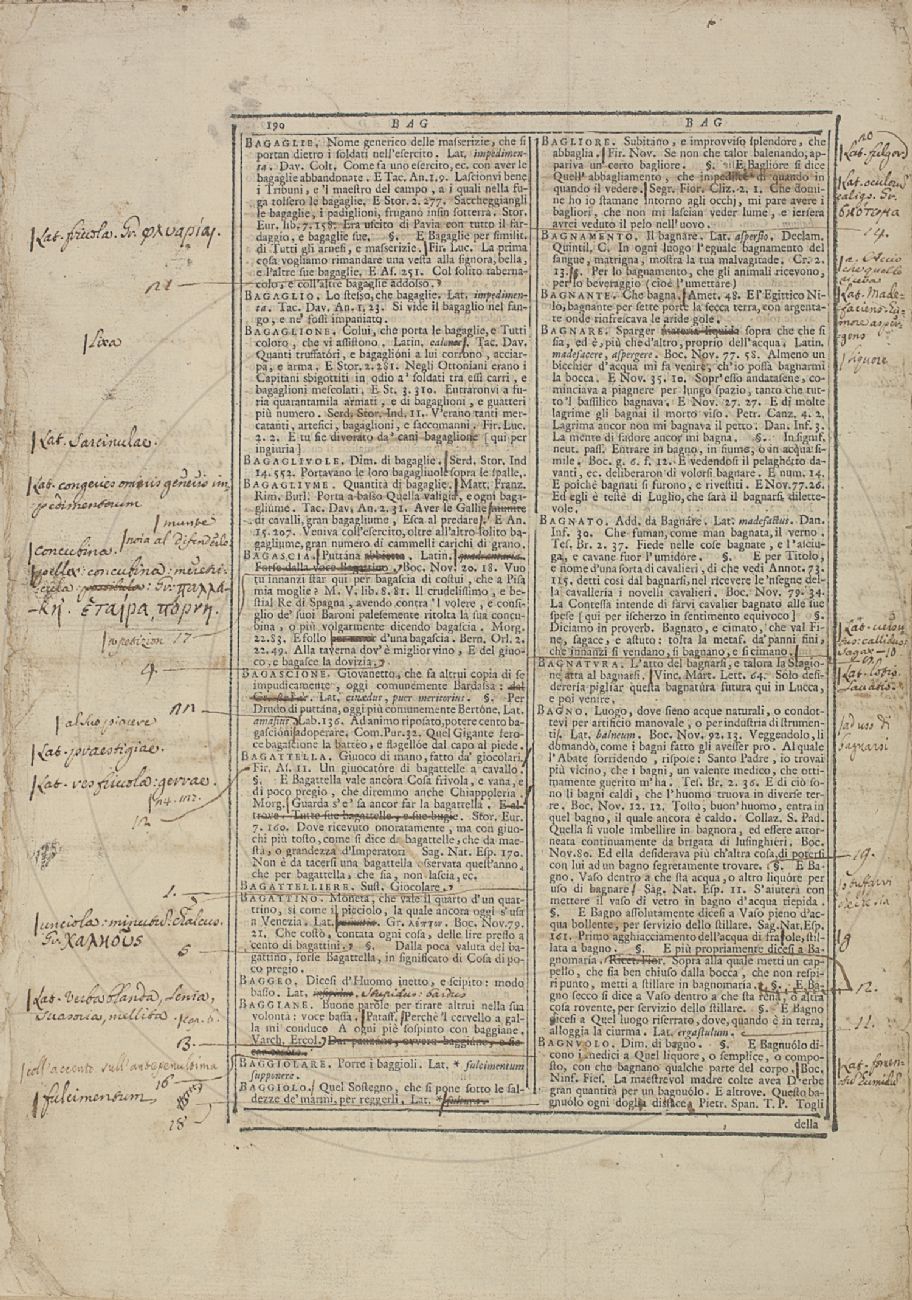 190 BAG BAG
BAGAGLIE. Nome generico delle masserizie, che si
portan dietro i soldati nell'esercito. Lat. impedimen-
ta. Dav. Colt. Come fa uno esercito, ec. con aver le
bagaglie abbandonate. E Tac. An. 1. 9. Lascionvi bene
i Tribuni, e 'l maestro del campo, a i quali nella fu-
ga tolsero le bagaglie. E Stor. 2. 277. Saccheggiangli
le bagaglie, i padiglioni, frugano insin sotterra. Stor.
Eur. lib. 7. 158. Era uscito di Pavia con tutto il far-
daggio, e bagaglie sue. §. E Bagaglie per similit.
di Tutti gli arnesi, e masserizie. Fir. Luc. La prima
cosa vogliamo rimandare una vesta alla signora, bella,
e l'altre sue bagaglie. E As. 251. Col solito taberna-
colo, e coll'altre bagaglie addosso.
BAGAGLIO. Lo stesso, che bagaglie. Lat. impedimen-
ta. Tac. Dav. An. 1. 23. Si vide il bagaglio nel fan-
go, e ne' fossi impaniato.
BAGAGLIONE. Colui, che porta le bagaglie, e Tutti
coloro, che vi assistono. Latin. calones. Tac. Dav.
Quanti truffatori, e bagaglioni a lui corrono, acciar-
pa, e arma. E Stor. 2. 281. Negli Ottoniani erano i
Capitani sbigottiti in odio a' soldati tra essi carri, e
bagaglioni mescolati. E St. 3. 310. Entraronvi a fu-
ria quarantamila armati, e di bagaglioni, e guatteri
più numero. Serd. Stor. Ind. 11. V'erano tanti mer-
catanti, artefici, bagaglioni, e saccomanni. Fir. Luc.
2. 2. E tu sie divorato da' cani bagaglione [ qui per
ingiuria ]
BAGAGLIVOLE. Dim. di bagaglie. Serd. Stor. Ind
14. 552. Portavano le loro bagagliuole sopra le spalle.
BAGAGLIVME. Quantità di bagaglie. Matt. Franz.
Rim. Burl. Porta a basso Quella valigia, e ogni baga-
gliume. Tac. Dav. An. 2. 31. Aver le Gallie smunte
di cavalli, gran bagagliume, Esca al predare. E An.
15. 207. Veniva coll'esercito, oltre all'altro solito ba-
gagliume, gran numero di cammelli carichi di grano.
BAGASCIA. Puttana abbietta. Latin.
Forse dalla voce Bagascion. Boc. Nov. 20. 18. Vuo
tu innanzi star quì per bagascia di costui, che a Pisa
mia moglie? M. V. lib. 8. 81. Il crudelissimo, e be-
stial Re di Spagna, avendo contra 'l volere, e consi-
glio de' suoi Baroni palesemente ritolta la sua concu-
bina, o più volgarmente dicendo bagascia. Morg.
22. 83. E follo d'una bagascia. Bern. Orl. 2.
22. 49. Alla taverna dov'è miglior vino, E del giuo-
co, e bagasce la dovizia.
BAGASCIONE. Giovanetto, che fa altrui copia di se
impudicamente, oggi comunemente Bardassa:
Lat. cinaedus, puer meritorius. §. Per
Drudo di puttana, oggi più comunemente Bertone, Lat.
amasius. Lab. 136. Ad animo riposato, potere cento ba-
gascioni adoperare. Com. Pur. 32. Quel Gigante fero-
ce bagascione la battèo, e flagellóe dal capo al piede.
BAGATTELLA. Giuoco di mano, fatto da' giocolari.
Fir. As. 11. Un giuocatóre di bagattelle a cavallo.
§. E Bagattella vale ancóra Cosa frivola, e vana, e
di poco pregio, che diremmo anche Chiappoleria.
Morg. Guarda s'e' sa ancor far la bagattella. E al-
trove. Tutte sue bagattelle, e sue bugie. Stor. Eur.
7. 160. Dove ricevuto onoratamente, ma con giuo-
chi più tosto, come si dice da bagattelle, che da mae-
stà, o grandezza d'Imperatori Sag. Nat. Esp. 170.
Non è da tacersi una bagattella osservata quest'anno,
che per bagattella, che sia, non lascia, ec.
BAGATTELLIERE. Sust. Giocolare.
BAGATTINO. Moneta, che vale il quarto d'un quat-
trino, si come il picciolo, la quale ancora oggi s'usa
in Venezia. Lat. Gr. λέπτον. Boc. Nov. 79.
21. Che costò, contata ogni cosa, delle lire presso a
cento di bagattini. §. Dalla poca valuta del ba-
gattino, forse Bagattella, in significato di Cosa di po-
co pregio.
BAGGEO. Dicesi d'Huomo inetto, e scipito: modo
basso. Lat. stupidus: bardus
BAGGIANE. Buone paróle per tirare altrui nella sua
volontà: voce bassa. Pataff. Perchè 'l cervello a gal-
la mi conduce A ogni piè sospinto con baggiane.
Varch. Ercol. Dar panzane, ovvero baggiane, o fic
BAGGIOLARE. Porre i baggioli. Lat. * fulcimentum
supponere.
BAGGIOLO. Quel Sostegno, che si pone sotto le sal-
dezze de' marmi, per reggerli, Lat. *
BAGLIORE. Subitano, e improvviso splendore, che
abbaglia. Fir. Nov. Se non che talor balenando, ap-
pariva un certo bagliore. §. E Bagliore si dice
Quell' abbagliamento, che impedisce di quando in
quando il vedere. Segr. Fior. Cliz. 2. 1. Che domi-
ne ho io stamane intorno agli occhj, mi pare avere i
bagliori, che non mi lascian veder lume, e iersera
avrei veduto il pelo nell'uovo.
BAGNAMENTO. Il bagnare. Lat. aspersio. Declam.
Quintil. C. In ogni luogo l'eguale bagnamento del
sangue, matrigna, mostra la tua malvagitade. Cr. 2.
13. 8. Per lo bagnamento, che gli animali ricevono,
per lo beveraggio (cioè l'umettare)
BAGNANTE. Che bagna. Amet. 48. E l'Egittico Ni-
lo, bagnante per sette porte la secca terra, con argenta-
te onde rinfrescava le aride gole.
BAGNARE. Sparger materia liquida sopra che che si
sia, ed è, più che d'altro, proprio dell'acqua. Latin.
madefacere, aspergere. Boc. Nov. 77. 58. Almeno un
bicchier d'acqua mi fa venire, ch'io possa bagnarmi
la bocca. E Nov. 35. 10. Sopr'esso andatasene, co-
minciava a piagnere per lungo spazio, tanto che tut-
to 'l bassilico bagnava. E Nov. 27. 27. E di molte
lagrime gli bagnai il morto viso. Petr. Canz. 4. 2.
Lagrima ancor non mi bagnava il petto. Dan. Inf. 3.
La mente di sudore ancor mi bagna. §. In signif.
neut. pass. Entrare in bagno, in fiume, o in acqua si-
mile. Boc. g. 6. f. 12. E vedendosi il pelaghetto da-
vanti, ec. deliberaron di volersi bagnare. E num. 14.
E poichè bagnati si furono, e rivestiti. E Nov. 77. 26.
Ed egli è testè di Luglio, che sarà il bagnarsi dilette-
vole.
BAGNATO. Add. da Bagnare. Lat. madefactus. Dan.
Inf. 30. Che fuman, come man bagnata, il verno:
Tes. Br. 2. 37. Fiede nelle cose bagnate, e l'asciu-
ga, e cavane fuor l'umidore. §. E per Titolo,
e nome d'una sorta di cavalieri, di che vedi Annot. 73.
115. detti così dal bagnarsi, nel ricevere le 'nsegne del-
la cavalleria i novelli cavalieri. Boc. Nov. 79. 34.
La Contessa intende di farvi cavalier bagnato alle sue
spese [ qui per ischerzo in sentimento equivoco ] §.
Diciamo in proverb. Bagnato, e cimato, che val Fi-
ne, sagace, e astuto: tolta la metaf. da' panni fini,
che innanzi si vendano, si bagnano, e si cimano.
BAGNATVRA. L'atto del bagnarsi, e talora la Stagio-
ne atta al bagnarsi. Vinc. Mart. Lett. 64. Solo desi-
dereria pigliar questa bagnatura futura qui in Lucca,
e poi venire.
BAGNO. Luogo, dove sieno acque naturali, o condot-
tevi per artificio manovale, o per industria di strumen-
ti. Lat. balneum. Boc. Nov. 92. 13. Veggendolo, li
domandò, come i bagni fatto gli avesser pro. Al quale
l'Abate sorridendo, rispose: Santo Padre, io trovai
più vicino, che i bagni, un valente medico, che otti-
mamente guerito m'ha. Tes. Br. 2. 36. E di ciò so-
no li bagni caldi, che l'huomo truova in diverse ter-
re. Boc. Nov. 12. 12. Tosto, buon'huomo, entra in
quel bagno, il quale ancora è caldo. Collaz. S. Pad.
Quella si vuole imbellire in bagnora, ed essere attor-
neata continuamente da brigata di lusinghieri. Boc.
Nov. 80. Ed ella desiderava più ch'altra cosa, di potersi
con lui ad un bagno segretamente trovare. §. E Ba-
gno. Vaso dentro a che sta acqua, o altro liquóre per
uso di bagnare. Sag. Nat. Esp. 11. S'aiuterà con
mettere il vaso di vetro in bagno d'acqua tiepida.
§. E Bagno assolutamente dicesi a Vaso pieno d'ac-
qua bollente, per servizio dello stillare. Sag. Nat. Esp.
161. Primo agghiacciamento dell'acqua di fragole, stil-
lata a bagno. §. E più propriamente dicesi a Ba-
gnomaria. Ricet. Fior. Sopra alla quale metti un cap-
pello, che sia ben chiuso dalla bocca, che non respi-
ri punto, metti a stillare in bagnomaria. §. E Ba-
gno secco si dice a Vaso dentro a che sta rena, o altra
cosa rovente, per servizio dello stillare. §. E Bagno
dicesi a Quel luogo riserrato, dove, quando è in terra,
alloggia la ciurma. Lat. ergastulum.
BAGNVOLO. Dim. di bagno. §. E Bagnuólo di-
cono i medici a Quel liquore, o semplice, o compo-
sto, con che bagnano qualche parte del corpo. Boc.
Ninf. Fies. La maestrevol madre colte avea D'erbe
gran quantità per un bagnuólo. E altrove. Questo ba-
gnuólo ogni doglia disface. Pietr. Span. T. P. Togli
della
Lat. fricola. Gr. φλυαρίαι.
21
Lixa
Lat. Sarcinulae.
Lat. congeries omnis generis im-
pedimentorum
munge
concubina.
pellex: concubina: meretri-
Gr. παλλα-
κή. ἑταίρα, πόρνη.
17
9.
al suo piacere
Lat. praestigiae.
Lat. res frivola: gerrae.
12
1.
unciola: minutus: chalcus.
Gr. χαλκοῦς
5
Lat. Verba blanda, lenia,
suasoria, mellita.
13.
coll'accento sull'antepenultima
16
fulcimentum,
18
20
Lat. fulgor
Lat. oculorum
caligo. Gr.
14.
Lat. Made-
liquore
10
ad uso di
bagnarsi
19.
12.
11.